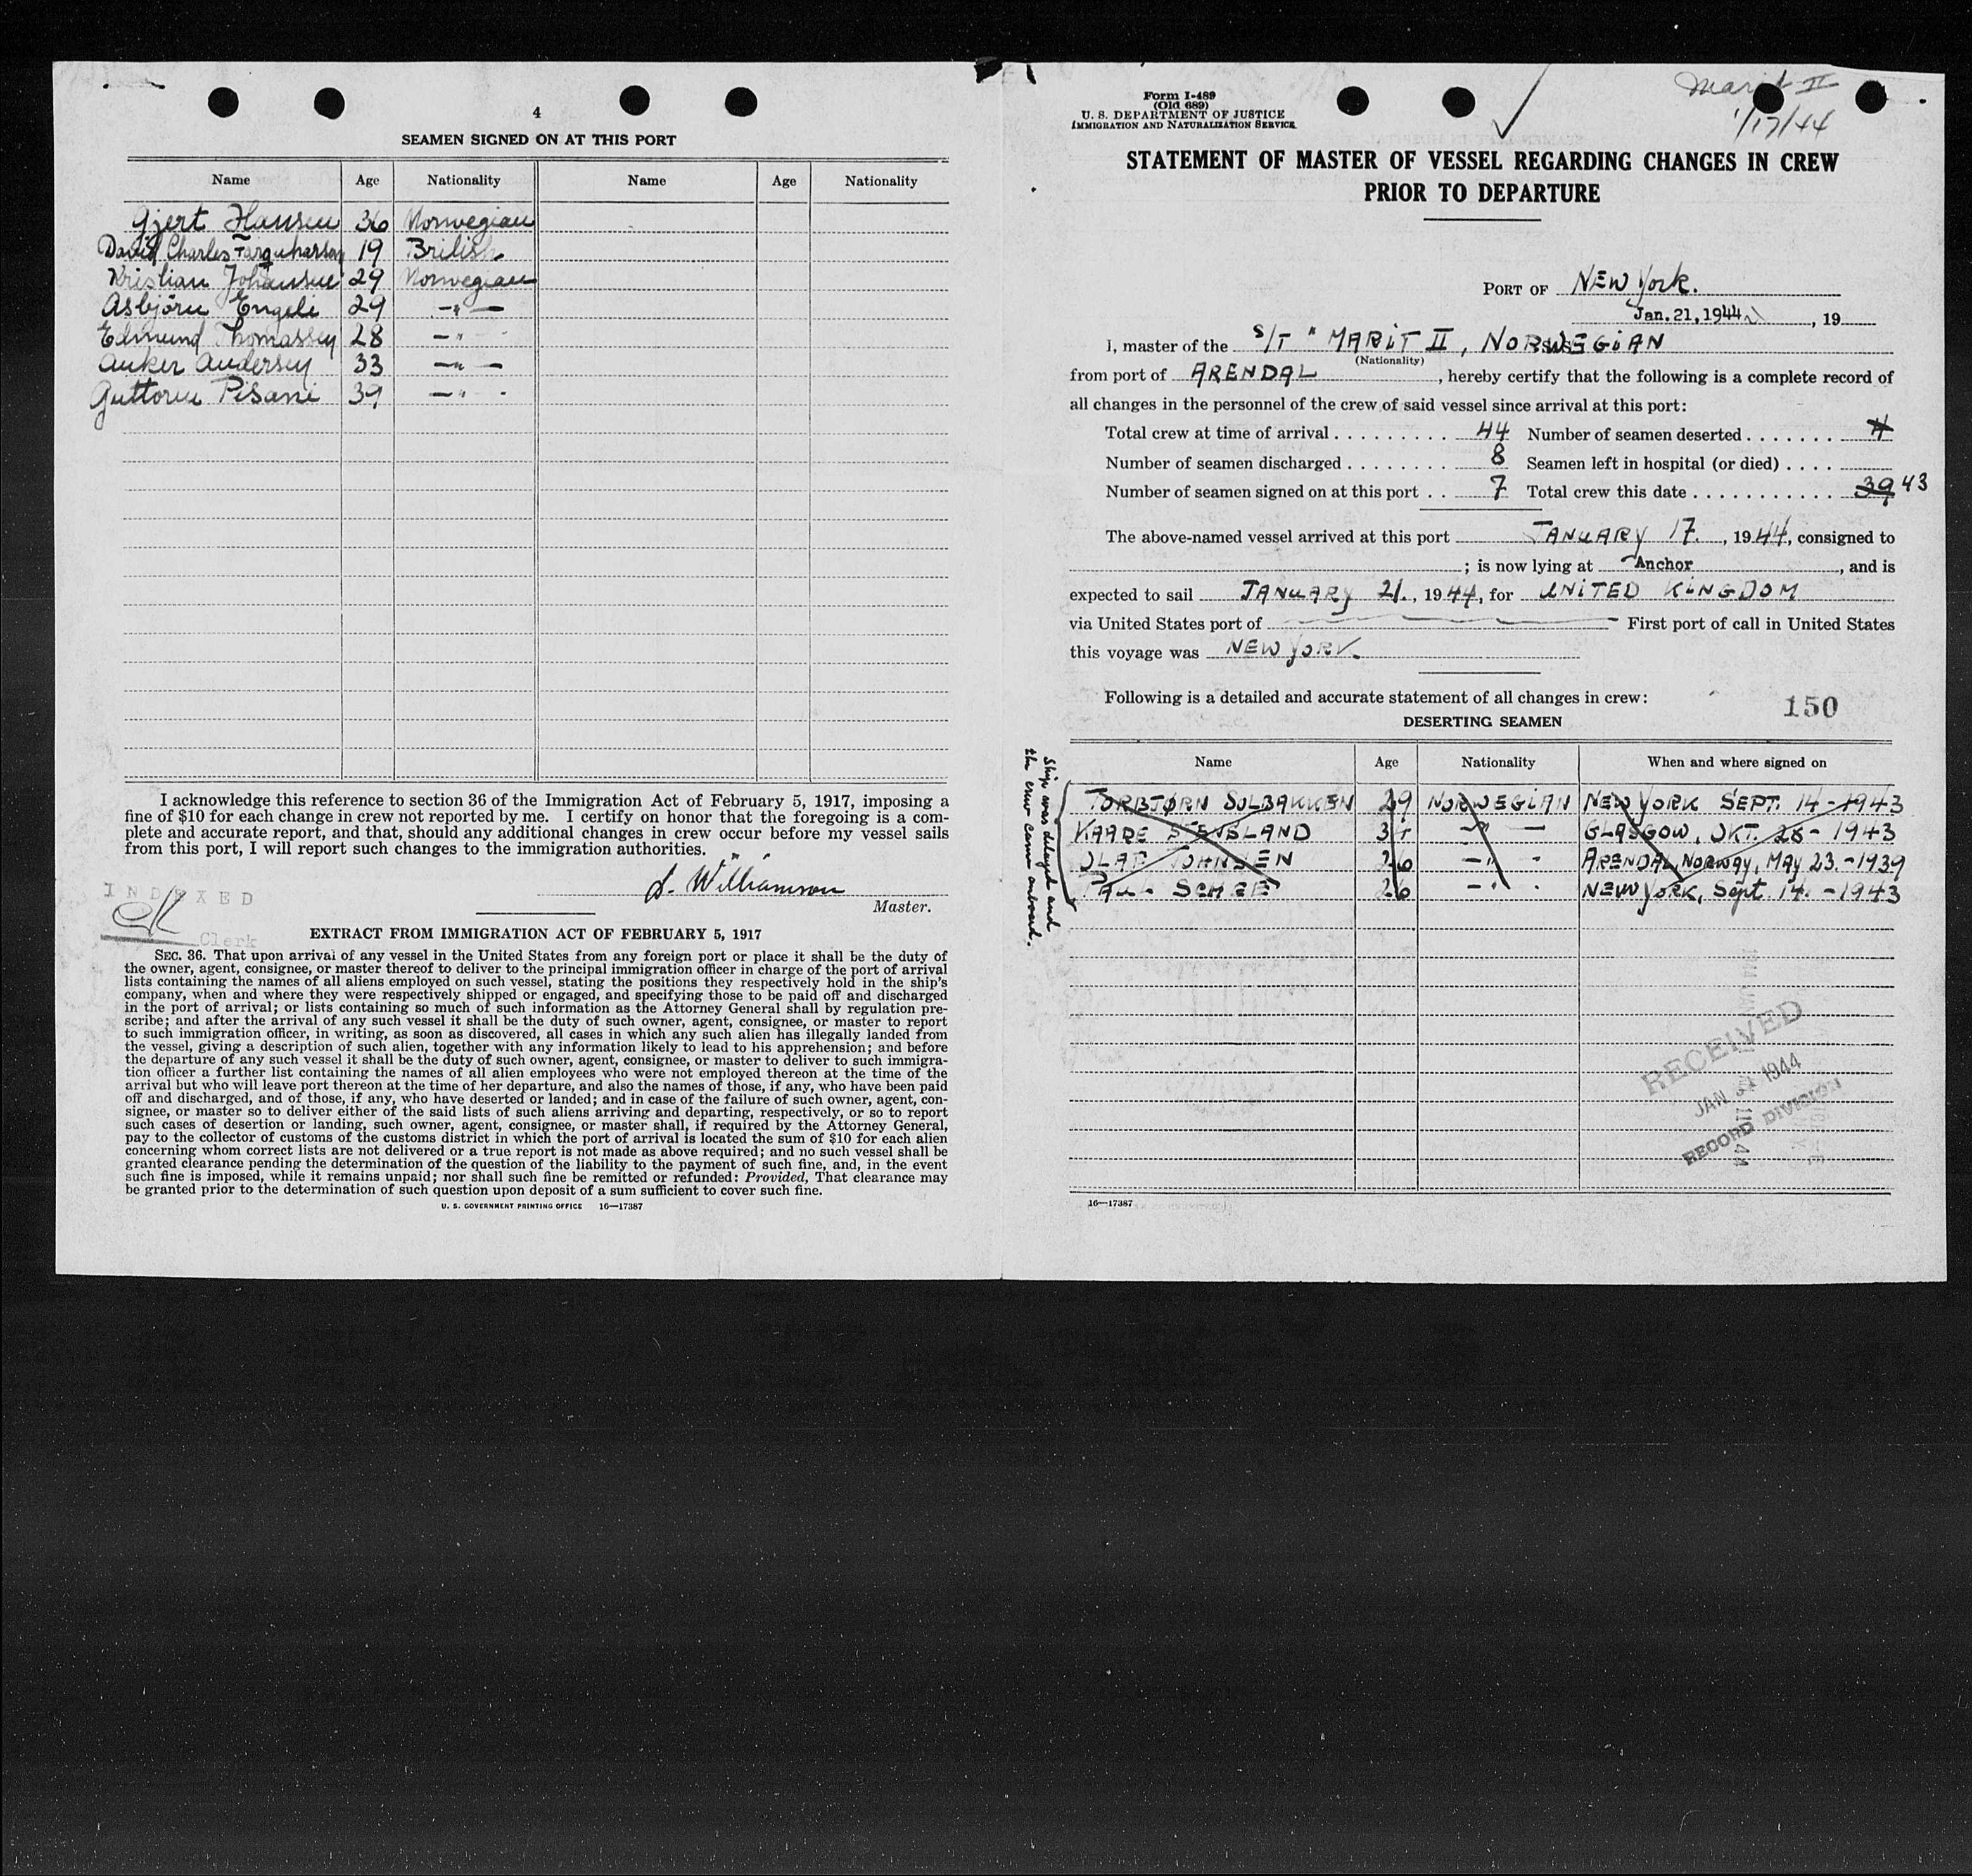 4
SEAMEN SIGNED ON AT THIS PORT
Name Age Nationality Name Age Nationality
Gjert Hansen 36 Norwegian
David Charles Farquharson 19 British
Kristian Johansen 29 Norwegian
Asbjörn Engeli 29 —"—
Edmund Thomassen 28 —"—
Anker Andersen 33 —"—
Guttorm Pisani 39 —"—
I acknowledge this reference to section 36 of the Immigration Act of February 5, 1917, imposing a
fine of $10 for each change in crew not reported by me. I certify on honor that the foregoing is a com-
plete and accurate report, and that, should any additional changes in crew occur before my vessel sails
from this port, I will report such changes to the immigration authorities.
S. Williamson
Master.
INDEXED
Clerk
EXTRACT FROM IMMIGRATION ACT OF FEBRUARY 5, 1917
SEC. 36. That upon arrival of any vessel in the United States from any foreign port or place it shall be the duty of
the owner, agent, consignee, or master thereof to deliver to the principal immigration officer in charge of the port of arrival
lists containing the names of all aliens employed on such vessel, stating the positions they respectively hold in the ship's
company, when and where they were respectively shipped or engaged, and specifying those to be paid off and discharged
in the port of arrival; or lists containing so much of such information as the Attorney General shall by regulation pre-
scribe; and after the arrival of any such vessel it shall be the duty of such owner, agent, consignee, or master to report
to such immigration officer, in writing, as soon as discovered, all cases in which any such alien has illegally landed from
the vessel, giving a description of such alien, together with any information likely to lead to his apprehension; and before
the departure of any such vessel it shall be the duty of such owner, agent, consignee, or master to deliver to such immigra-
tion officer a further list containing the names of all alien employees who were not employed thereon at the time of the
arrival but who will leave port thereon at the time of her departure, and also the names of those, if any, who have been paid
off and discharged, and of those, if any, who have deserted or landed; and in case of the failure of such owner, agent, con-
signee, or master so to deliver either of the said lists of such aliens arriving and departing, respectively, or so to report
such cases of desertion or landing, such owner, agent, consignee, or master shall, if required by the Attorney General,
pay to the collector of customs of the customs district in which the port of arrival is located the sum of $10 for each alien
concerning whom correct lists are not delivered or a true report is not made as above required; and no such vessel shall be
granted clearance pending the determination of the question of the liability to the payment of such fine, and, in the event
such fine is imposed, while it remains unpaid; nor shall such fine be remitted or refunded: Provided, That clearance may
be granted prior to the determination of such question upon deposit of a sum sufficient to cover such fine.
U. S. GOVERNMENT PRINTING OFFICE 16—17387
Form I-489
(Old 689)
U. S. DEPARTMENT OF JUSTICE
IMMIGRATION AND NATURALIZATION SERVICE
Marit II
1/17/44
STATEMENT OF MASTER OF VESSEL REGARDING CHANGES IN CREW
PRIOR TO DEPARTURE
PORT OF NEW York.
Jan. 21, 1944, 19
I, master of the S/T "MARIT II, NORWEGIAN
(Nationality)
from port of ARENDAL, hereby certify that the following is a complete record of
all changes in the personnel of the crew of said vessel since arrival at this port:
Total crew at time of arrival . . . . . . . . . 44 Number of seamen deserted . . . . . . . 4
Number of seamen discharged . . . . . . . . 8 Seamen left in hospital (or died) . . . .
Number of seamen signed on at this port . . 7 Total crew this date . . . . . . . . . . . . 39 43
The above-named vessel arrived at this port JANUARY 17., 1944, consigned to
; is now lying at Anchor, and is
expected to sail JANUARY 21., 1944, for UNITED KINGDOM
via United States port of First port of call in United States
this voyage was NEW YORK.
Following is a detailed and accurate statement of all changes in crew:
150
DESERTING SEAMEN
Name Age Nationality When and where signed on
TORBJØRN SOLBAKKEN 29 NORWEGIAN NEW YORK SEPT. 14-1943
KAARE STENSLAND 34 —"— GLASGOW, OKT. 28-1943
OLAF JOHNSEN 26 —"— ARENDAL, NORWAY, MAY 23.-1939
PAUL SCHEE 26 —"— NEW YORK, Sept 14.-1943
Ship was delayed and
the crew came onboard.
RECEIVED
JAN 1944
RECORD DIVISION
16—17387